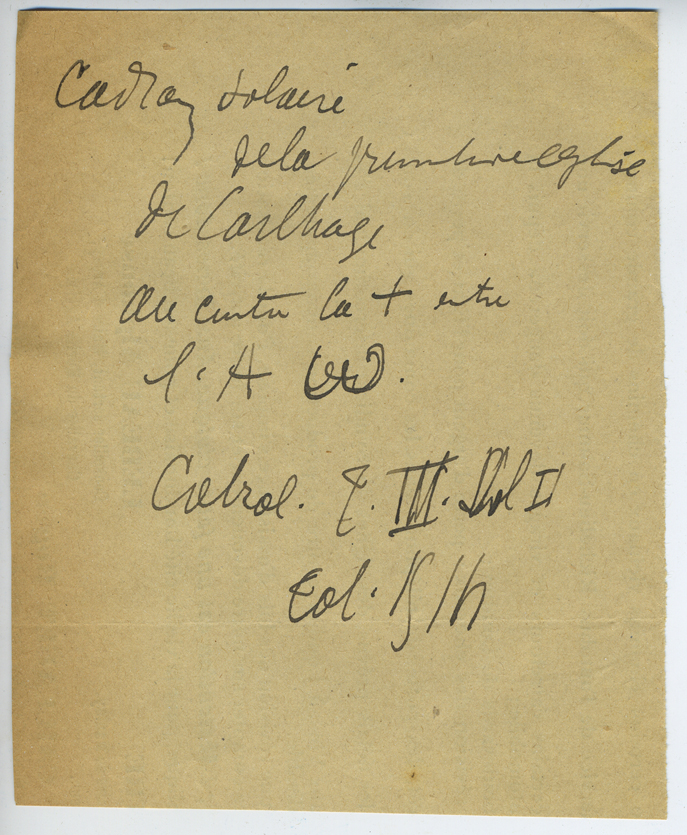 Cadran solaire
de la primitive eglise
de Carthage
au centre la + entre
l'A ω.
Cabrol. T. III. Vol II
Col.